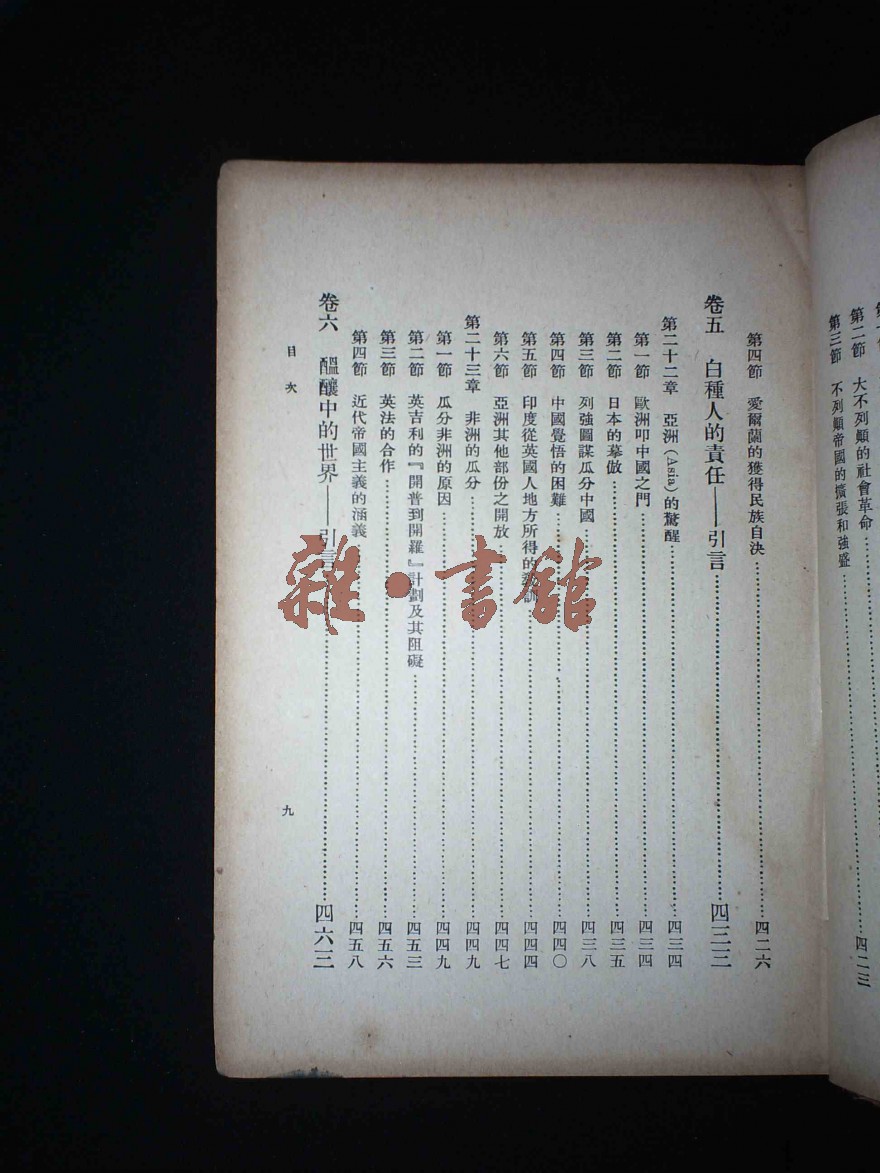 第二節　大不列顚的社會革命
第三節　不列顚帝國的擴張和強盛……四二三
第四節　愛爾蘭的獲得民族自決……四二六
卷五　白種人的責任——引言……四三三
第二十二章　亞洲(Asia)的驚醒……四三四
第一節　歐洲叩中國之門……四三四
第二節　日本的摹倣……四三五
第三節　列強圖謀瓜分中國……四三八
第四節　中國覺悟的困難……四四〇
第五節　印度從英國人地方所得的教訓……四四四
第六節　亞洲其他部份之開放……四四七
第二十三章　非洲的瓜分……四四九
第一節　瓜分非洲的原因……四四九
第二節　英吉利的『開普到開羅』計劃及其阻礙……四五三
第三節　英法的合作……四五六
第四節　近代帝國主義的涵義……四五八
卷六　醞釀中的世界——引言……四六三
目次
九
雜·書館